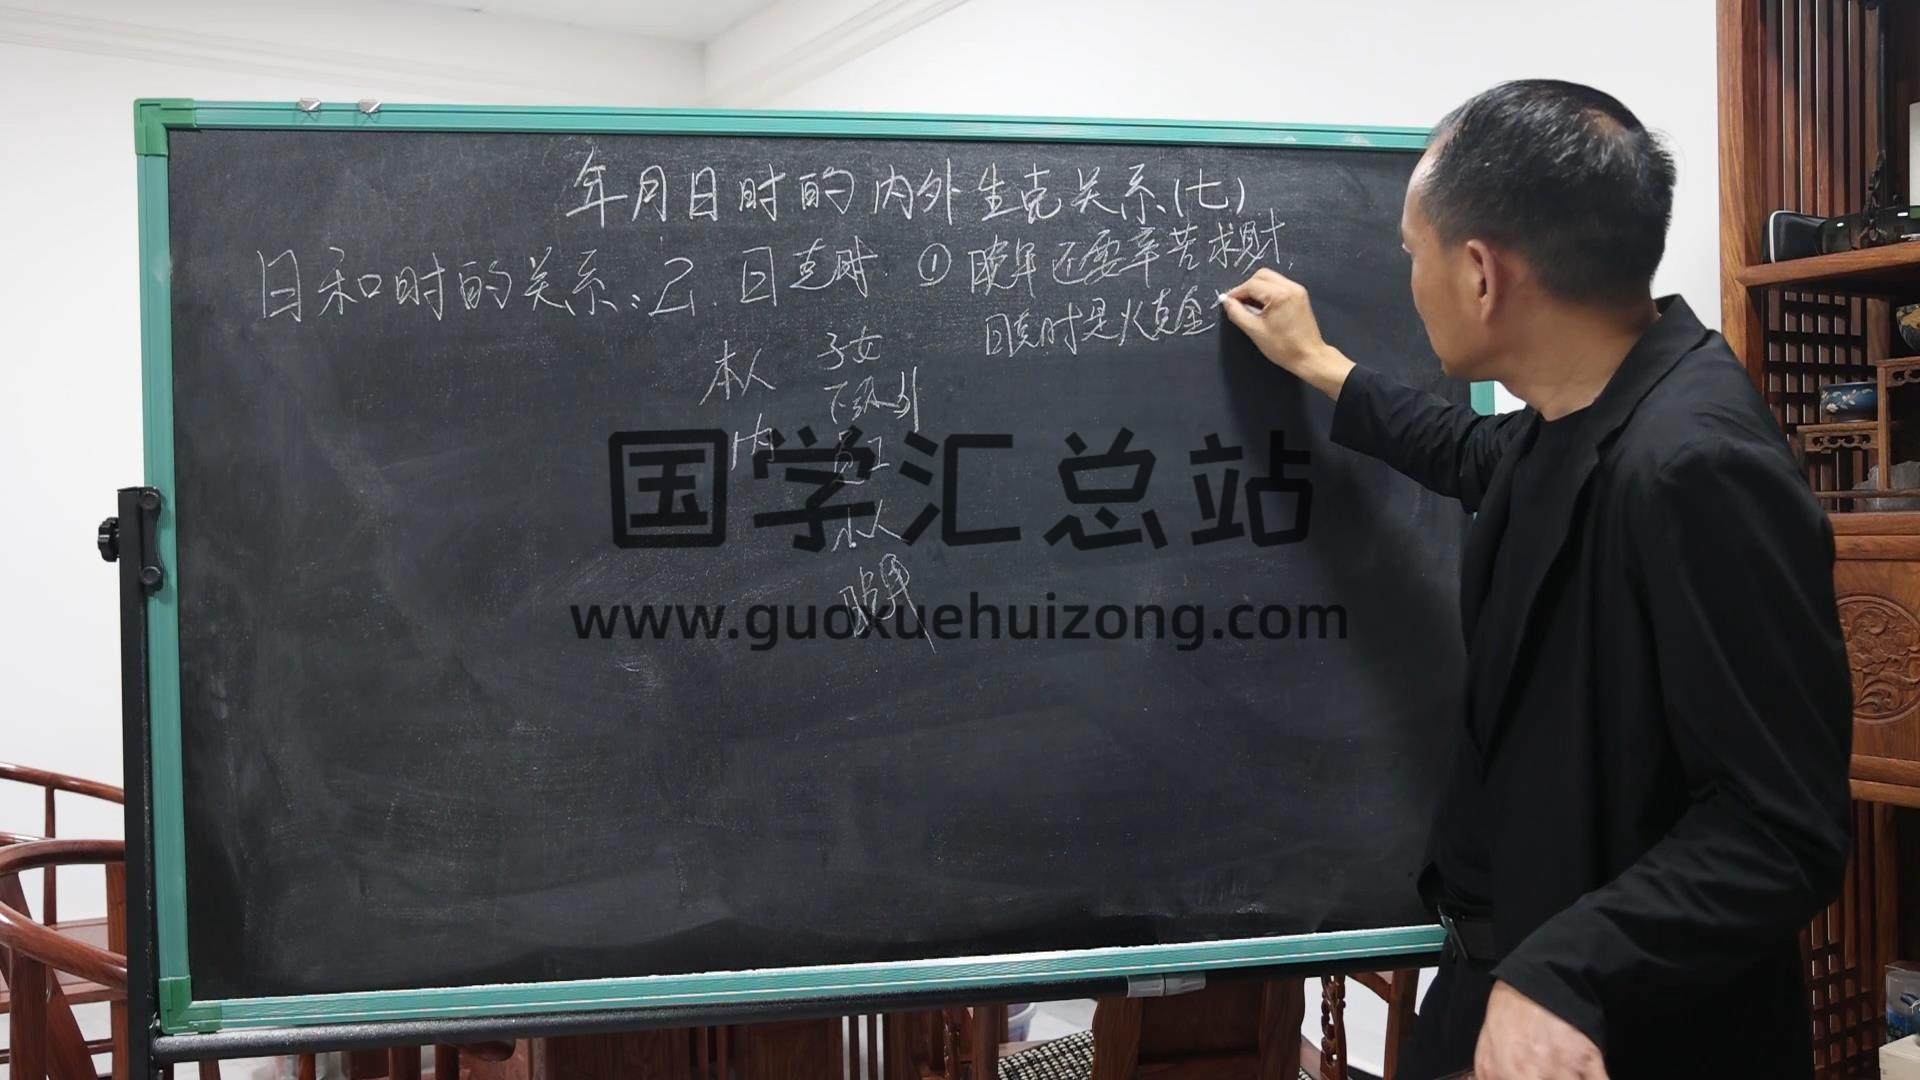 年月日时的内外生克关系(七)
日和时的关系:2.日克时 ①晚年还要辛苦求财,
日克时是火克金
本人 子女
下级 外
内 员工
本人
晚年
国学汇总站
www.guoxuehuizong.com